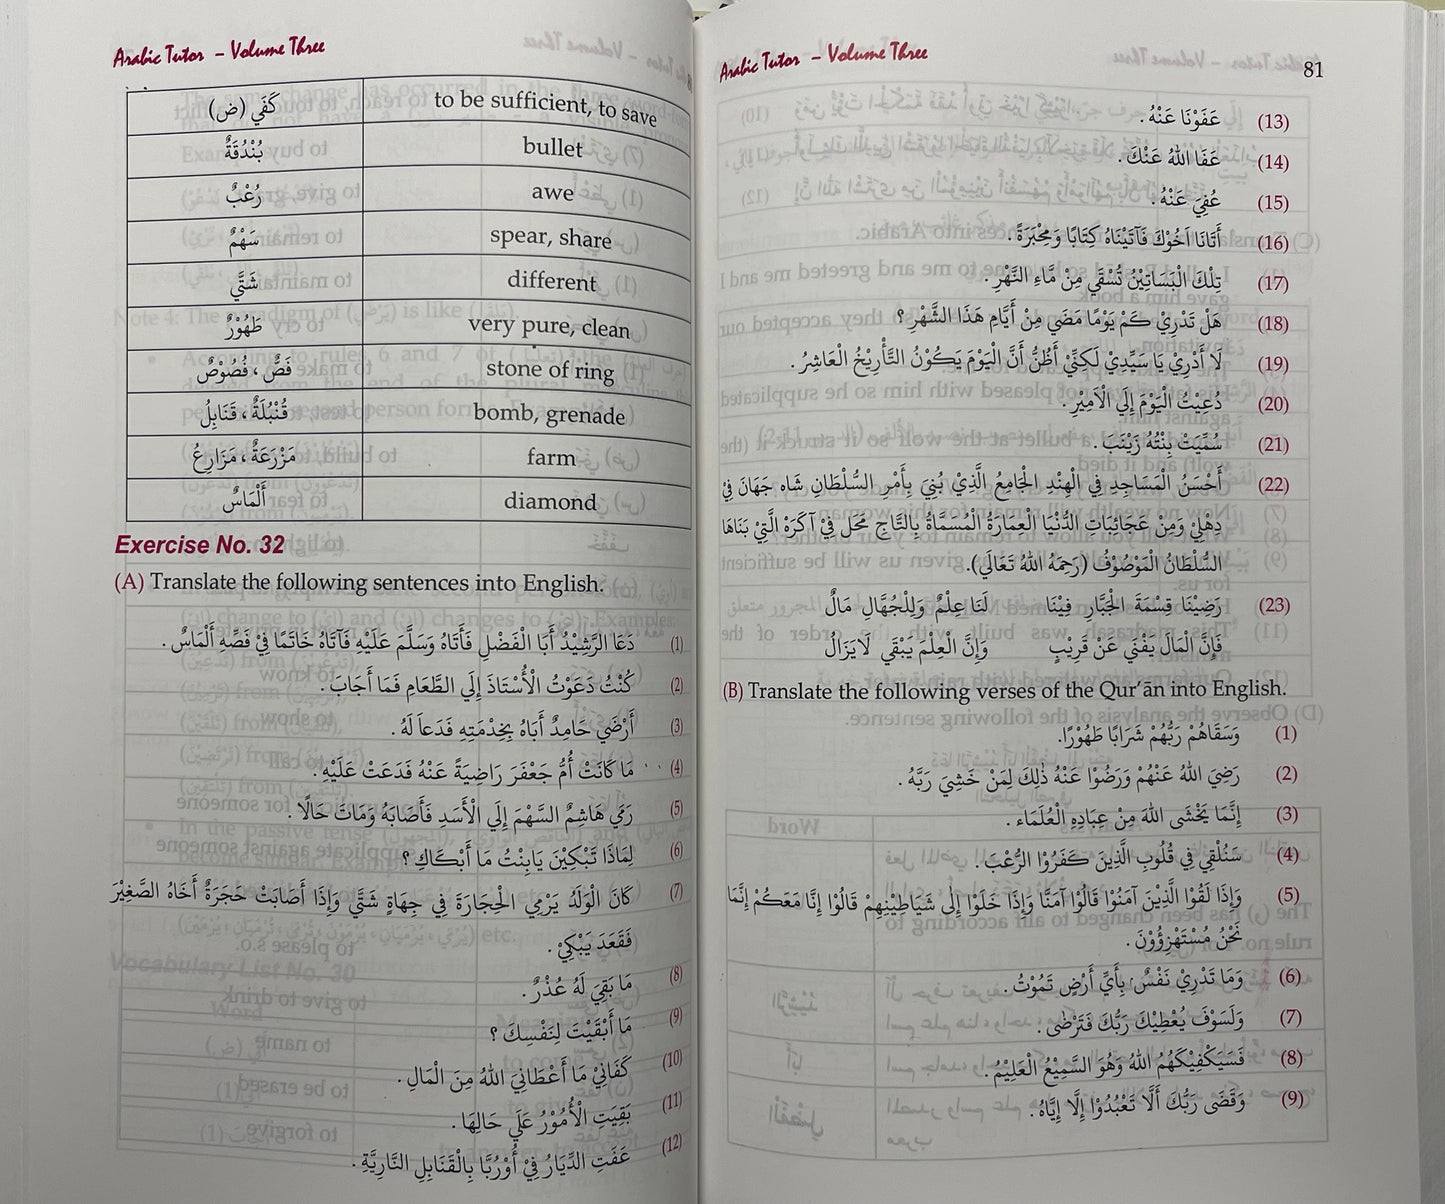 Arabic Tutor – Volume Three
كَفَي (ض) to be sufficient, to save
بُنْدُقَةٌ bullet
رُعْبٌ awe
سَهْمٌ spear, share
شَتَّي different
طَهُوْرٌ very pure, clean
فَصٌّ ، فُصُوْصٌ stone of ring
قُنْبُلَةٌ ، قَنَابِلُ bomb, grenade
مَزْرَعَةٌ ، مَزَارِعُ farm
أَلْمَاسٌ diamond
Exercise No. 32
(A) Translate the following sentences into English.
(1) دَعَا الرَّشِيْدُ أَبَا الْفَضْلِ فَأَتَاهُ وَسَلَّمَ عَلَيْهِ فَآتَاهُ خَاتَمًا فِيْ فَصِّهِ أَلْمَاسٌ .
(2) كُنْتُ دَعَوْتُ الْأُسْتَاذَ إِلَي الطَّعَامِ فَمَا أَجَابَ .
(3) أَرْضَي حَامِدٌ أَبَاهُ بِخِدْمَتِهِ فَدَعاَ لَهُ .
(4) مَا كَانَتْ أُمُّ جَعْفَرَ رَاضِيَةً عَنْهُ فَدَعَتْ عَلَيْهِ .
(5) رَمَي هَاشِمٌ السَّهْمَ إِلَي الْأَسَدِ فَأَصَابَهُ وَمَاتَ حَالًا .
(6) لِمَاذَا تَبْكِيْنَ يَابِنْتُ مَا أَبْكَاكِ ؟
(7) كَانَ الْوَلَدُ يَرْمِي الْحِجَارَةَ فِي جِهَاةٍ شَتَّي وَإِذَا أَصَابَتْ حَجَرَةٌ أَخَاهُ الصَّغِيْرَ
فَقَعَدَ يَبْكِيْ .
(8) مَا بَقِيَ لَهُ عُذْرٌ .
(9) مَا أَبْقَيْتَ لِنَفْسِكَ ؟
(10) كَفَانِيْ مَا أَعْطَانِيَ اللهُ مِنَ الْمَالِ .
(11) بَقِيَتِ الْأُمُوْرُ عَلَي حَالِهَا .
(12) عَفَتِ الدِّيَارُ فِيْ أُوْرُبَّا بِالْقَنَابِلِ النَّارِيَّةِ .
Arabic Tutor – Volume Three 81
(13) عَفَوْنَا عَنْهُ .
(14) عَفَا اللهُ عَنْكَ .
(15) عُفِيَ عَنْهُ .
(16) أَتَانَا اَخُوْكَ فَآتَيْنَاهُ كِتَابًا وَمِحْبَرَةً .
(17) تِلْكَ الْبَسَاتِيْنُ تُسْقَي مِنْ مَّاءِ النَّهْرِ .
(18) هَلْ تَدْرِيْ كَمْ يَوْمًا مَضَي مِنْ أَيَّامِ هَذَا الشَّهْرِ ؟
(19) لَا أَدْرِيْ يَا سَيِّدِيْ لَكِنِّيْ أَظُنُّ أَنَّ الْيَوْمَ يَكُوْنُ التَّأْرِيْخُ الْعَاشِرُ .
(20) دُعِيْتُ الْيَوْمَ إِلَي الْأَمِيْرِ .
(21) سُمِّيَتْ بِنْتُهُ زَيْنَبَ .
(22) أَحْسَنُ الْمَسَاجِدِ فِي الْهِنْدِ الْجَامِعُ الَّذِيْ بُنِيَ بِأَمْرِ السُّلْطَانِ شَاه جَهَانَ فِيْ
دِهْلِيْ وَمِنْ عَجَائِبَاتِ الدُّنْيَا الْعِمَارَةُ الْمُسَمَّاةُ بِالتَّاجِ مَحَل فِيْ آكَرَهْ الَّتِيْ بَنَاهَا
السُّلْطَانُ الْمَوْصُوْفُ (رَحِمَهُ اللهُ تَعَالَي).
(23) رَضِيْنَا قِسْمَةَ الْجَبَّارِ فِيْنَا لَنَا عِلْمٌ وَلِلْجُهَّالِ مَالٌ
فَإِنَّ الْمَالَ يَفْنَي عَنْ قَرِيْبٍ وَإِنَّ الْعِلْمَ يَبْقَي لَايَزَالُ
(B) Translate the following verses of the Qur’ān into English.
(1) وَسَقَاهُمْ رَبُّهُمْ شَرَابًا طَهُوْرًا.
(2) رَضِيَ اللهُ عَنْهُمْ وَرَضُوْا عَنْهُ ذٰلِكَ لِمَنْ خَشِيَ رَبَّهُ .
(3) إِنَّمَا يَخْشَى اللهَ مِنْ عِبَادِهِ الْعُلَمَاء .
(4) سَنُلْقِي فِي قُلُوبِ الَّذِينَ كَفَرُوْا الرُّعْبَ .
(5) وَإِذَا لَقُوْا الَّذِيْنَ آمَنُوْا قَالُوْا آمَنَّا وَإِذَا خَلَوْا إِلٰى شَيَاطِيْنِهِمْ قَالُوْا إِنَّا مَعَكُمْ إِنَّمَا
نَحْنُ مُسْتَهْزِؤُوْنَ .
(6) وَمَا تَدْرِيْ نَفْسٌ بِأَيِّ أَرْضٍ تَمُوْتُ .
(7) وَلَسَوْفَ يُعْطِيْكَ رَبُّكَ فَتَرْضٰى .
(8) فَسَيَكْفِيْكَهُمُ اللهُ وَهُوَ السَّمِيْعُ الْعَلِيْمُ .
(9) وَقَضَى رَبُّكَ أَلَّا تَعْبُدُوْا إِلَّا إِيَّاهُ .